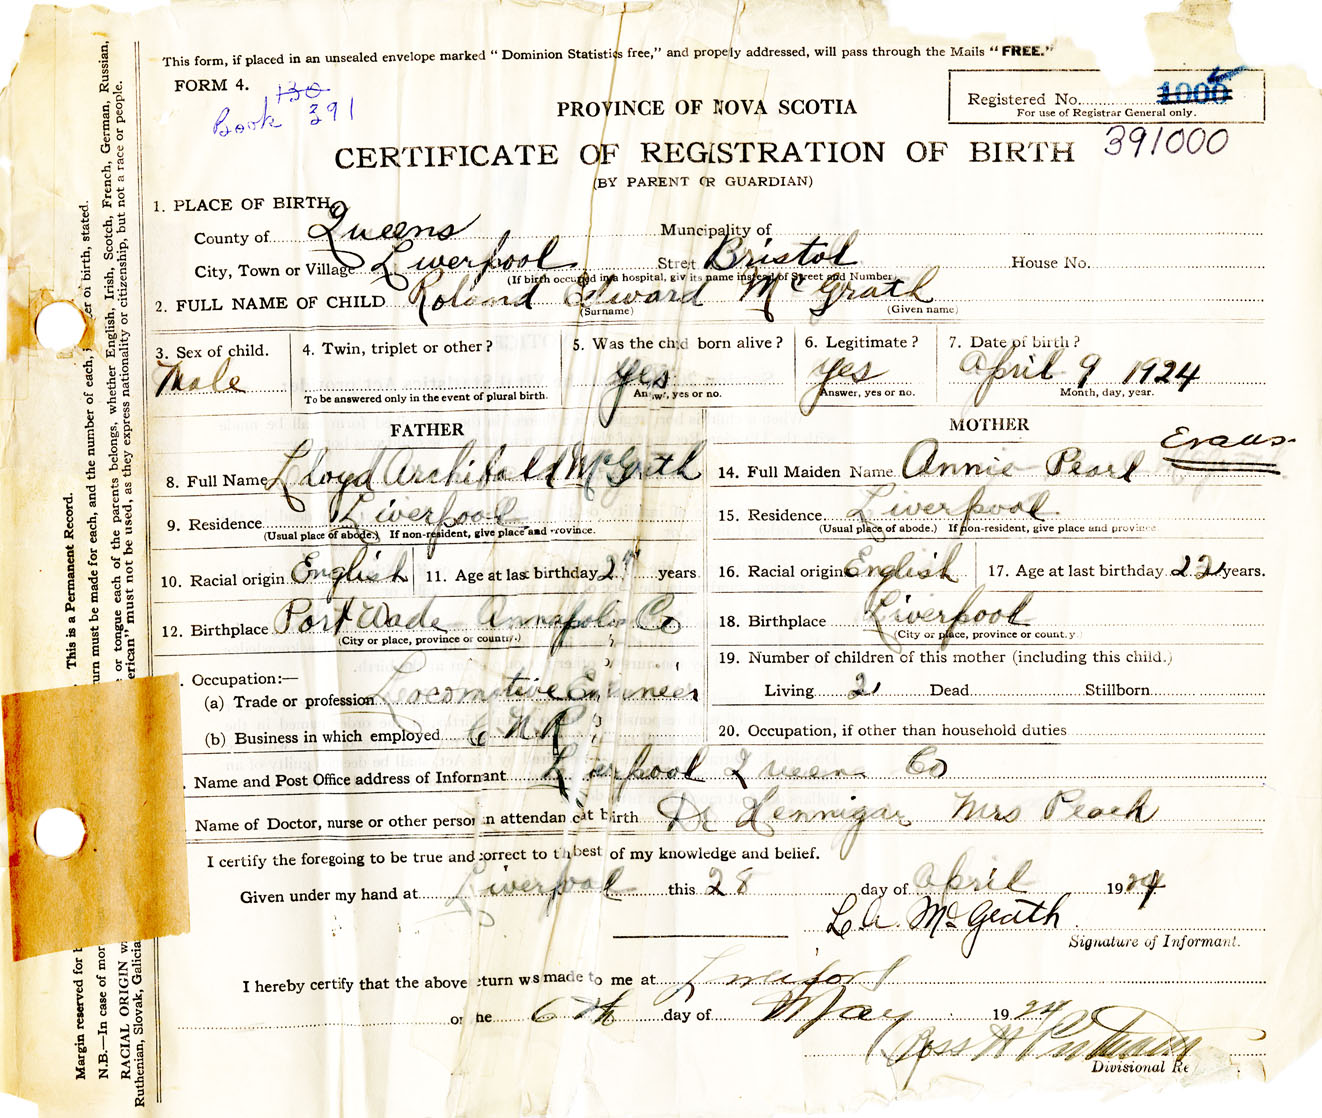 This form, if placed in an unsealed envelope marked "Dominion Statistics free," and properly addressed, will pass through the Mails "FREE."
FORM 4.
130
Book 391
Registered No. 1000
For use of Registrar General only.
PROVINCE OF NOVA SCOTIA
391000
CERTIFICATE OF REGISTRATION OF BIRTH
(BY PARENT OR GUARDIAN)
1. PLACE OF BIRTH
County of Queens Muncipality of
City, Town or Village Liverpool Street Bristol House No.
(If birth occurred in a hospital, give its name instead of Street and Number.
2. FULL NAME OF CHILD Roland Edward McGrath
(Surname) (Given name)
3. Sex of child. Male
4. Twin, triplet or other?
To be answered only in the event of plural birth.
5. Was the child born alive? Yes
Answer, yes or no.
6. Legitimate? Yes
Answer, yes or no.
7. Date of birth? April 9 1924
Month, day, year.
FATHER
8. Full Name Lloyd Archibald McGrath
9. Residence Liverpool
(Usual place of abode.) If non-resident, give place and province.
10. Racial origin English 11. Age at last birthday years
12. Birthplace Port Wade Annapolis Co
(City or place, province or country.)
Occupation:—
(a) Trade or profession Locomotive Engineer
(b) Business in which employed C N R
MOTHER
14. Full Maiden Name Annie Pearl Evans
15. Residence Liverpool
(Usual place of abode.) If non-resident, give place and province
16. Racial origin English 17. Age at last birthday 22 years.
18. Birthplace Liverpool
(City or place, province or country
19. Number of children of this mother (including this child.)
Living 2 Dead Stillborn
20. Occupation, if other than household duties
Name and Post Office address of Informant Liverpool Queens Co
Name of Doctor, nurse or other person in attendance at birth Dr Hennigar Mrs Peach
I certify the foregoing to be true and correct to the best of my knowledge and belief.
Given under my hand at Liverpool this 28 day of April 1924
L. A. McGrath
Signature of Informant.
I hereby certify that the above return was made to me at
on the 6th day of May 1924
Ross H
Divisional Re
Margin reserved for This is a Permanent Record.
N.B.—In case of mor urn must be made for each, and the number of each, er of birth, stated.
RACIAL ORIGIN w or tongue each of the parents belongs, whether English, Irish, Scotch, French, German, Russian,
Ruthenian, Slovak, Galicia erican" must not be used, as they express nationality or citizenship, but not a race or people.